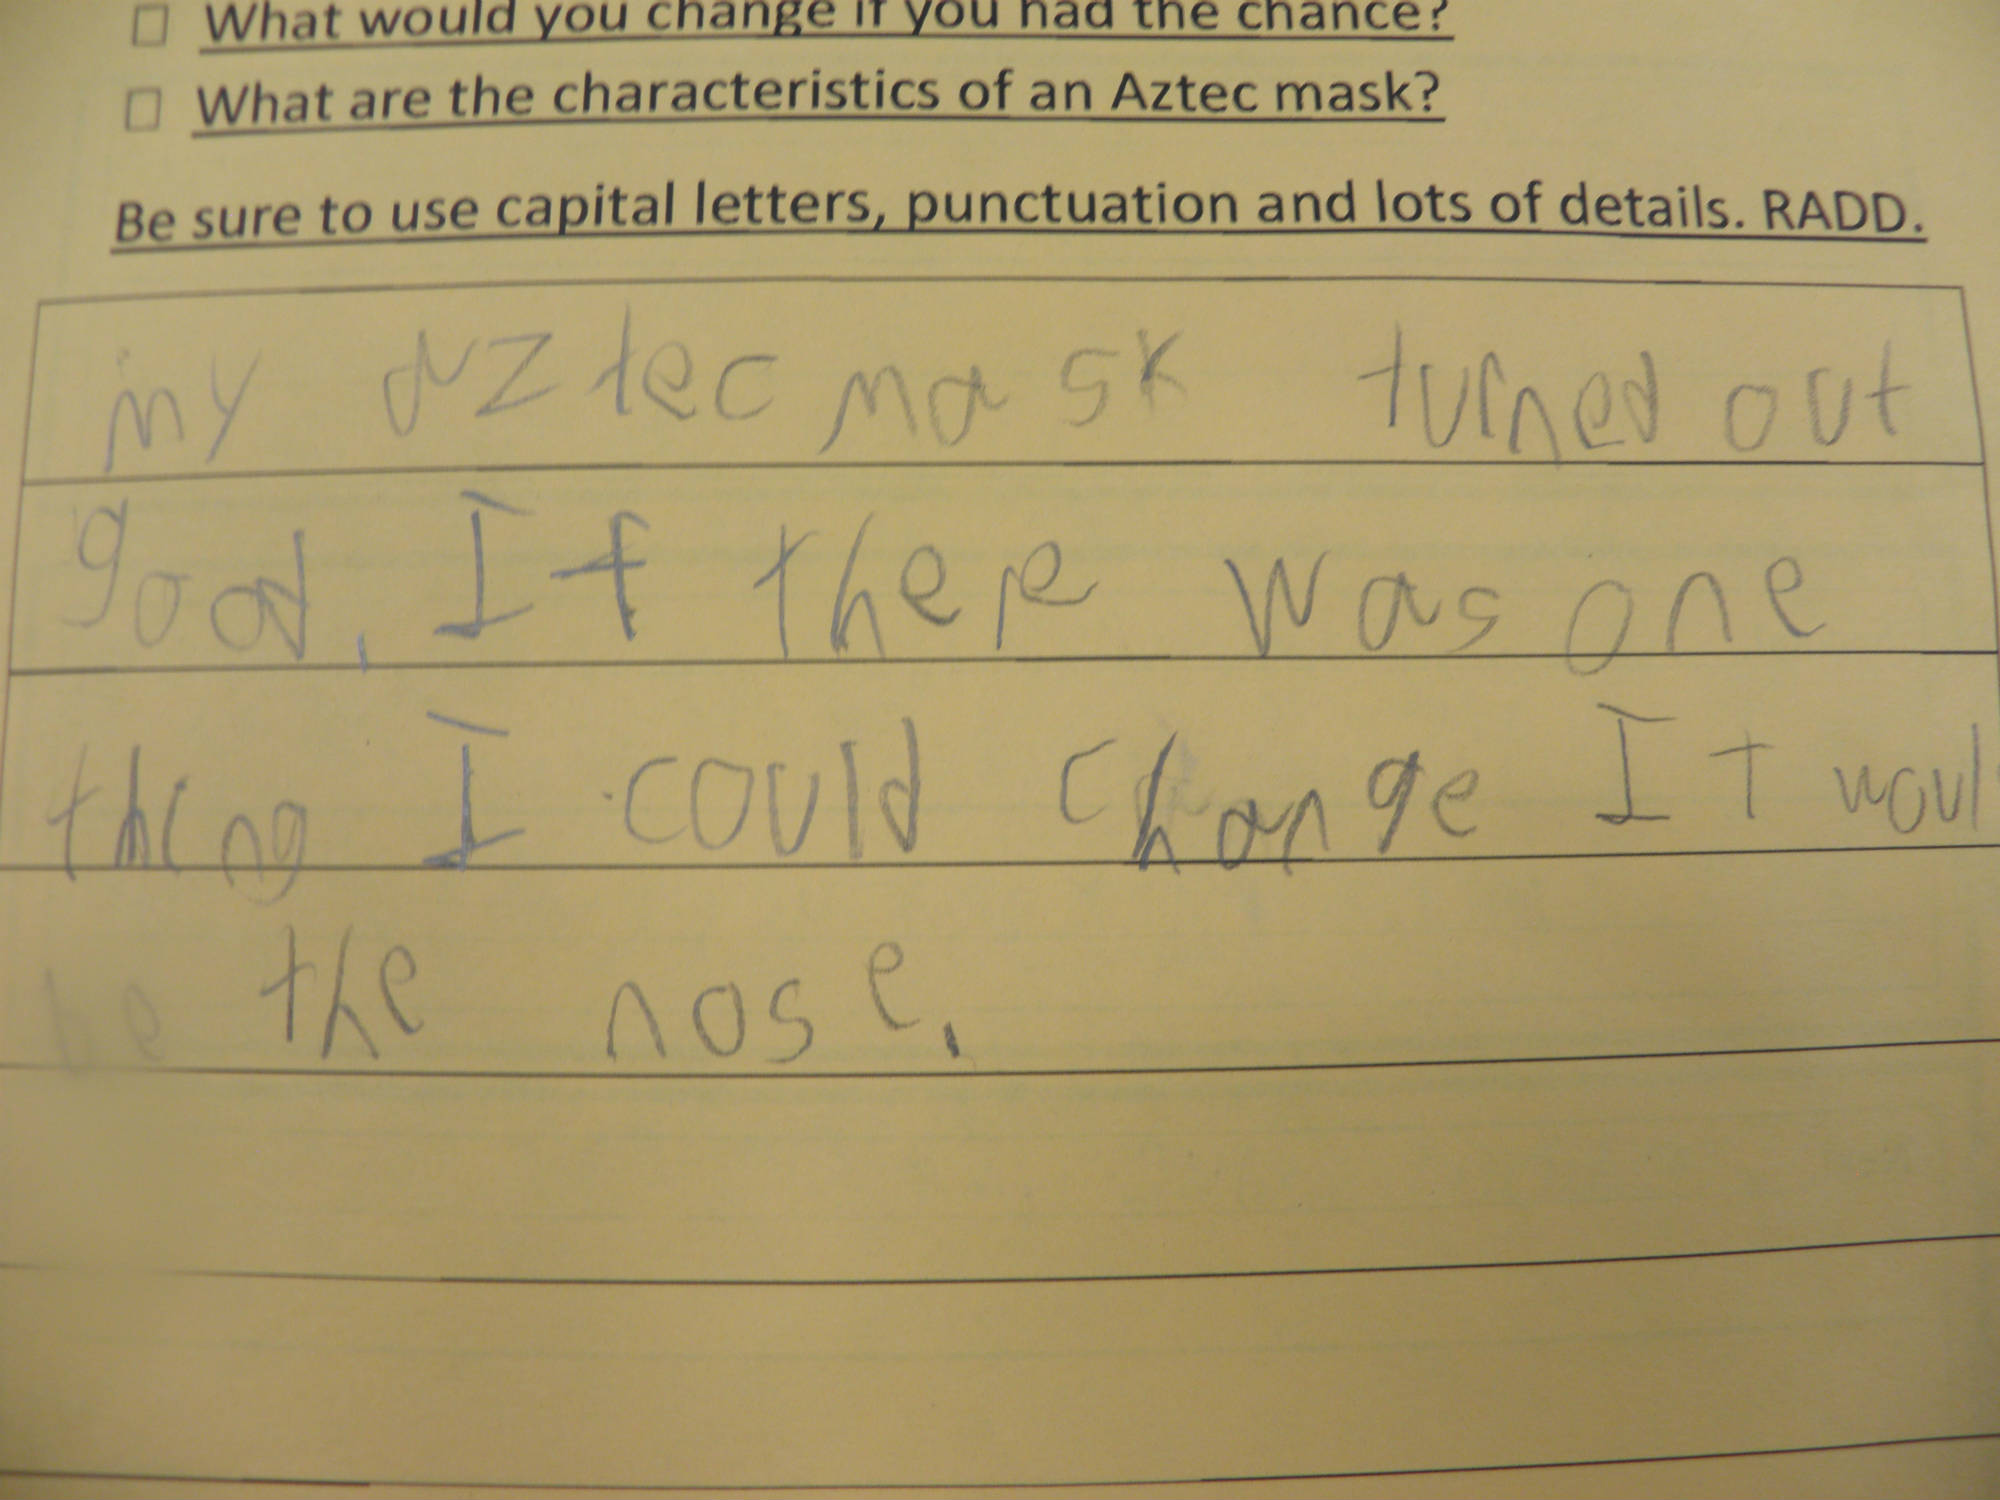 □ What would you change if you had the chance?
□ What are the characteristics of an Aztec mask?
Be sure to use capital letters, punctuation and lots of details. RADD.
my aztec mask turned out
good. If there was one
thing I could change It woul
be the nose.